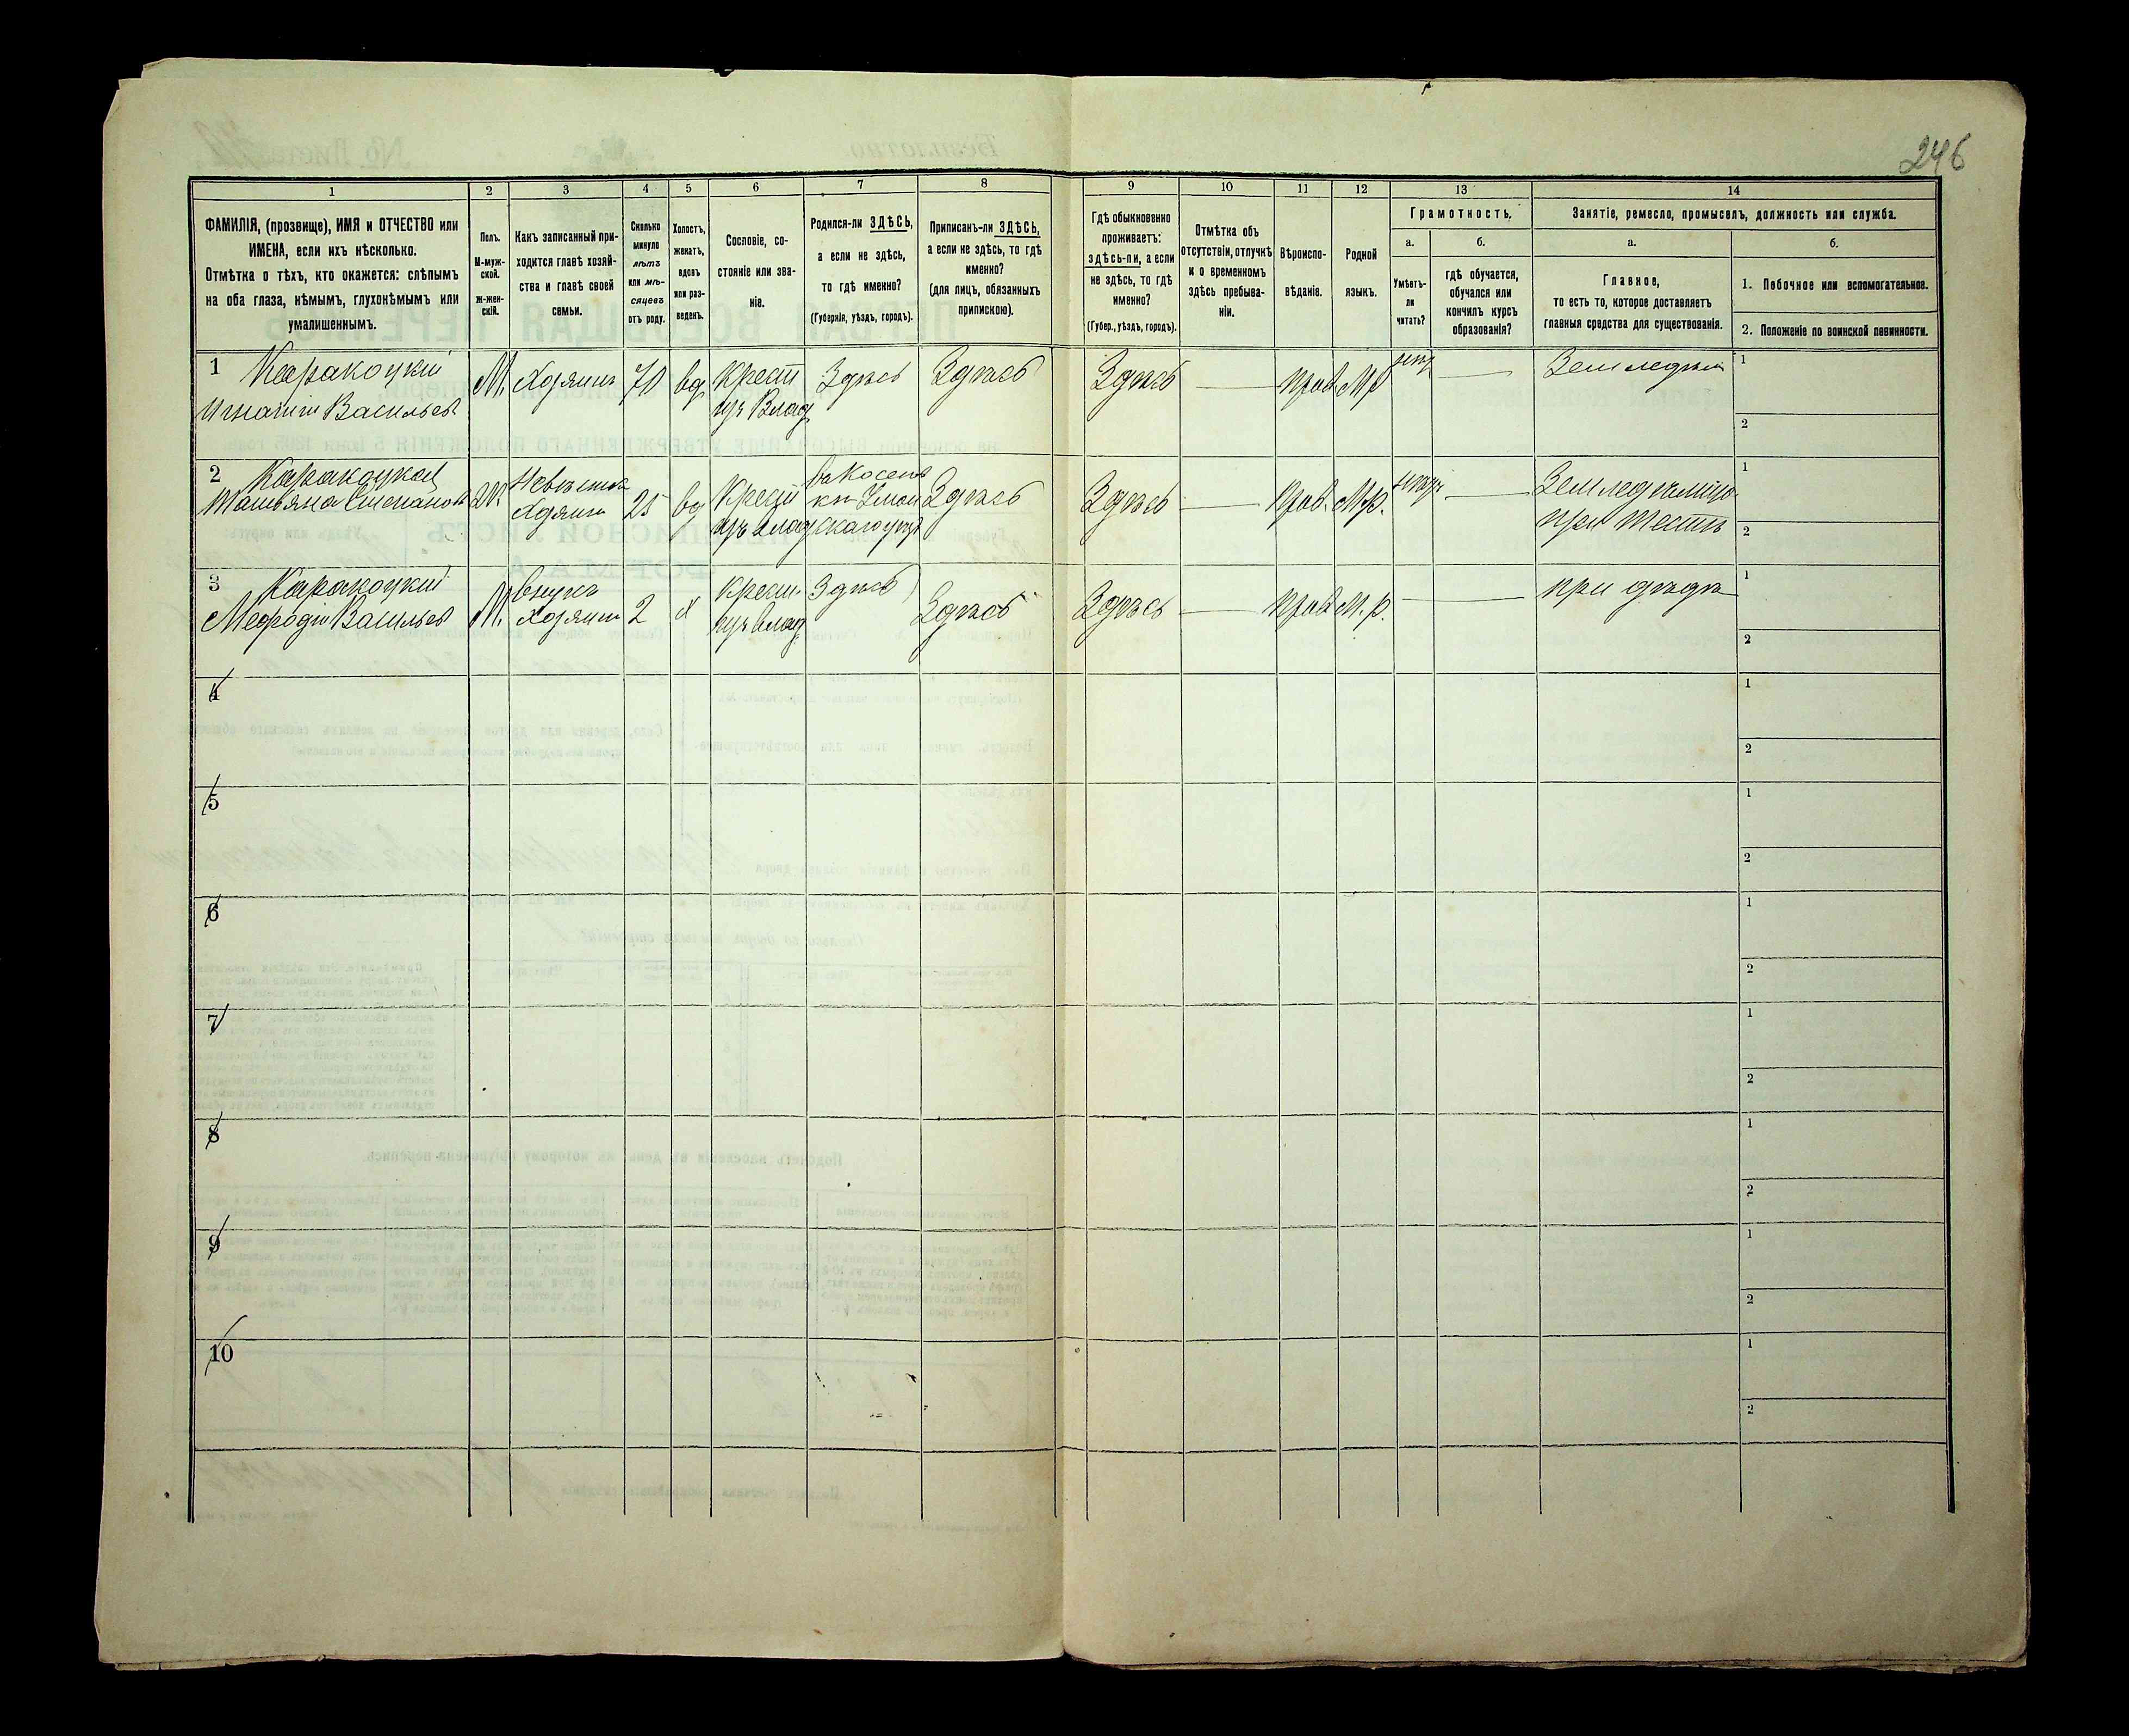 246
1 2 3 4 5 6 7 8 9 10 11 12 13 14
ФАМИЛІЯ, (прозвище), ИМЯ и ОТЧЕСТВО или
ИМЕНА, если ихъ нѣсколько.
Отмѣтка о тѣхъ, кто окажется: слѣпымъ
на оба глаза, нѣмымъ, глухонѣмымъ или
умалишеннымъ.
Полъ.
М-муж-
ской.
ж-жен-
скій.
Какъ записанный при-
ходится главѣ хозяй-
ства и главѣ своей
семьи.
Сколько
минуло
лѣтъ
или мѣ-
сяцевъ
отъ роду.
Холостъ,
женатъ,
вдовъ
или раз-
веденъ.
Сословіе, со-
стояніе или зва-
ніе.
Родился-ли ЗДѢСЬ,
а если не здѣсь,
то гдѣ именно?
(Губернія, уѣздъ, городъ).
Приписанъ-ли ЗДѢСЬ,
а если не здѣсь, то гдѣ
именно?
(для лицъ, обязанныхъ
припискою).
Гдѣ обыкновенно
проживаетъ:
здѣсь-ли, а если
не здѣсь, то гдѣ
именно?
(Губер., уѣздъ, городъ).
Отмѣтка объ
отсутствіи, отлучкѣ
и о временномъ
здѣсь пребыва-
ніи.
Вѣроиспо-
вѣданіе.
Родной
языкъ.
Грамотность.
а.
Умѣетъ-
ли
читать?
б.
гдѣ обучается,
обучался или
кончилъ курсъ
образованія?
Занятіе, ремесло, промыселъ, должность или служба.
а.
Главное,
то есть то, которое доставляетъ
главныя средства для существованія.
б.
1. Побочное или вспомогательное.
2. Положеніе по воинской повинности.
1 Каракоцкій
Игнатій Васильевъ
М. Хозяинъ 70 вд Крест
изъ Влад
Здѣсь Здѣсь Здѣсь Прав М.р
Земледѣл
1
2
2 Каракоцкая
Татьяна Степанова
Ж. Невѣстка
Хозяина
25 вд Крест
изъ Влад
Здѣсь Здѣсь Прав. М.р.
Земледѣліе
при тестѣ
1
2
3 Каракоцкий
Мефодій Васильев
М. внукъ
Хозяина
2 х Крест.
изъ влад
Здѣсь Здѣсь Здѣсь Прав М.р.
при дѣдѣ
1
2
4
1
2
5
1
2
6
1
2
7
1
2
8
1
2
9
1
2
10
1
2